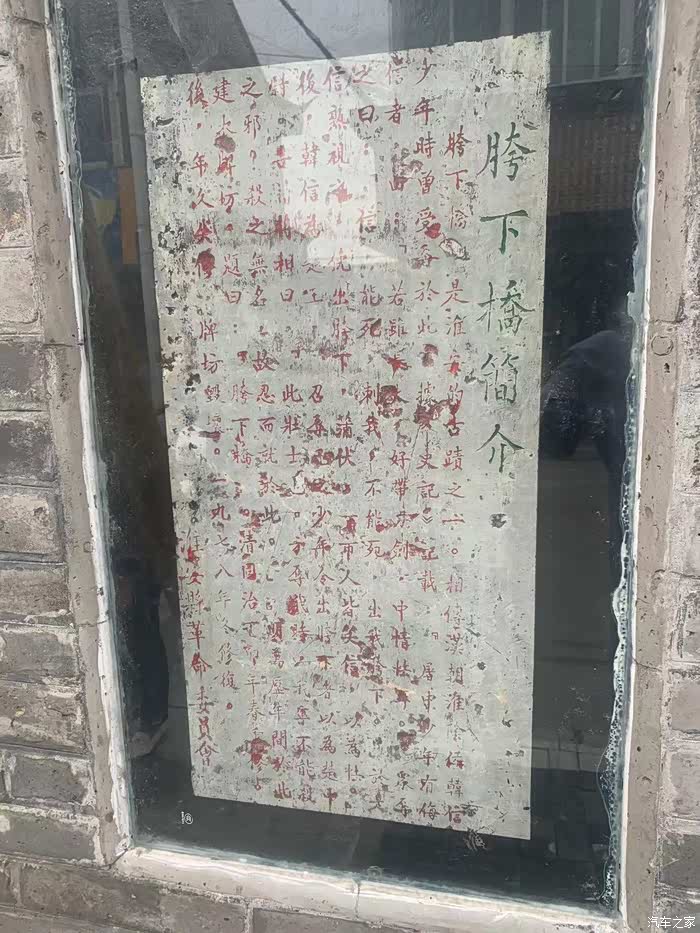 胯下橋簡介
胯下橋，是淮安的古蹟之一。相傳漢朝淮陰侯韓信
少年時曾受辱於此。據《史記》記載：「屠中少年有侮
信者，曰：若雖長大，好帶刀劍，中情怯耳。眾辱
之曰：信能死，刺我；不能死，出我胯下。於是
信熟視之，俛出胯下，蒲伏。一市人皆笑信，以為怯。
後，韓信為楚王，召辱己之少年令出胯下者以為楚中
尉。告諸將相曰：此壯士也。方辱我時，我寧不能殺
之邪？殺之無名，故忍而就於此。」明萬曆年間於此
建木牌坊。題曰：「胯下橋」。清同治丁卯年春
後，年久失修，牌坊毀。一九七八年冬修復。
淮安縣革命委員會
汽车之家